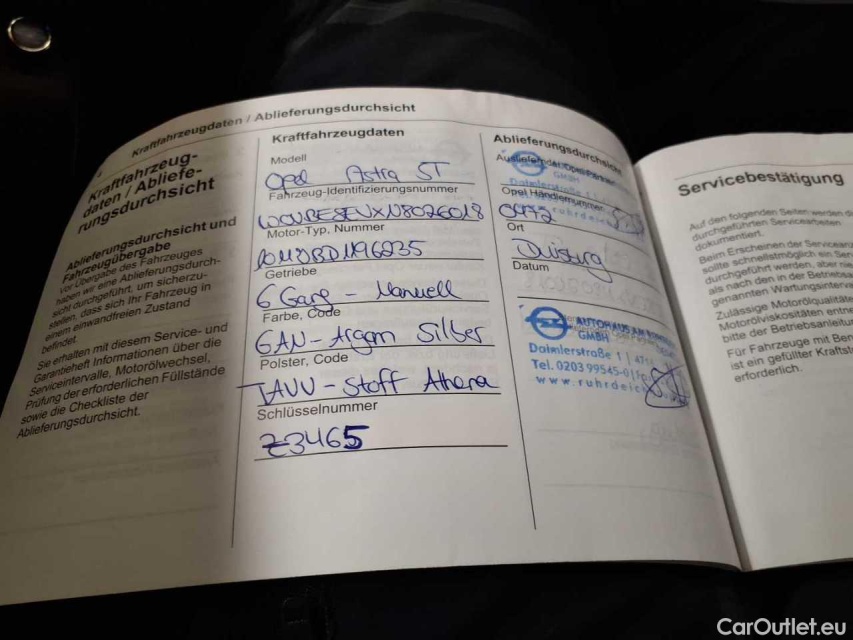 Kraftfahrzeugdaten / Ablieferungsdurchsicht
Kraftfahrzeug-
daten / Abliefe-
rungsdurchsicht
Ablieferungsdurchsicht und
Fahrzeugübergabe
Vor Übergabe des Fahrzeuges
haben wir eine Ablieferungsdurch-
sicht durchgeführt, um sicherzu-
stellen, dass sich Ihr Fahrzeug in
einem einwandfreien Zustand
befindet.
Sie erhalten mit diesem Service- und
Garantieheft Informationen über die
Serviceintervalle, Motorölwechsel,
Prüfung der erforderlichen Füllstände
sowie die Checkliste der
Ablieferungsdurchsicht.
Kraftfahrzeugdaten
Modell
Opel Astra ST
Fahrzeug-Identifizierungsnummer
Motor-Typ, Nummer
Getriebe
6 Gang - Manuell
Farbe, Code
GAN - Argon Silber
Polster, Code
TAVV - Stoff Athena
Schlüsselnummer
Z3465
Ablieferungsdurchsicht
Ausliefernder Opel Partner
GMBH
Daimlerstraße 1
Opel Händlernummer
Ort
Duisburg
Datum
AUTOHAUS AM
GMBH
Daimlerstraße 1 | 47
Tel. 0203 99545-0
www.ruhrdeic
Servicebestätigung
Auf den folgenden Seiten werden d
durchgeführten Servicearbeiten
dokumentiert.
Beim Erscheinen der Serviceanz
sollte schnellstmöglich ein Serv
durchgeführt werden, aber nie
als nach den in der Betriebsa
genannten Wartungsinterva
Zulässige Motorölqualitäte
Motorölviskositäten entne
bitte der Betriebsanleitu
Für Fahrzeuge mit Ben
ist ein gefüllter Kraftst
erforderlich.
CarOutlet.eu